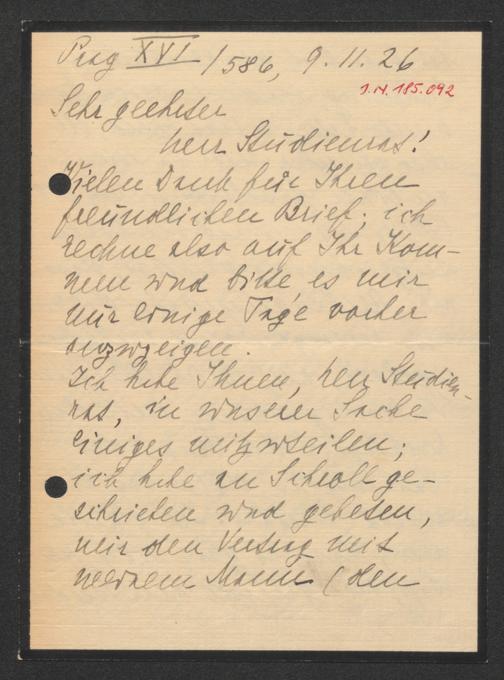 Prag XVI/586, 9.11.26
I.N. 185.092
Sehr geehrter
Herr Studienrat!
Vielen Dank für Ihren
freundlichen Brief; ich
rechne also auf Ihr Kom-
men und bitte, es mir
nur einige Tage vorher
anzuzeigen.
Ich habe Ihnen, Herr Studien-
rat, in unserer Sache
einiges mitzuteilen;
ich habe an Schroll ge-
schrieben und gebeten,
mir den Vertrag mit
meinem Mann (den